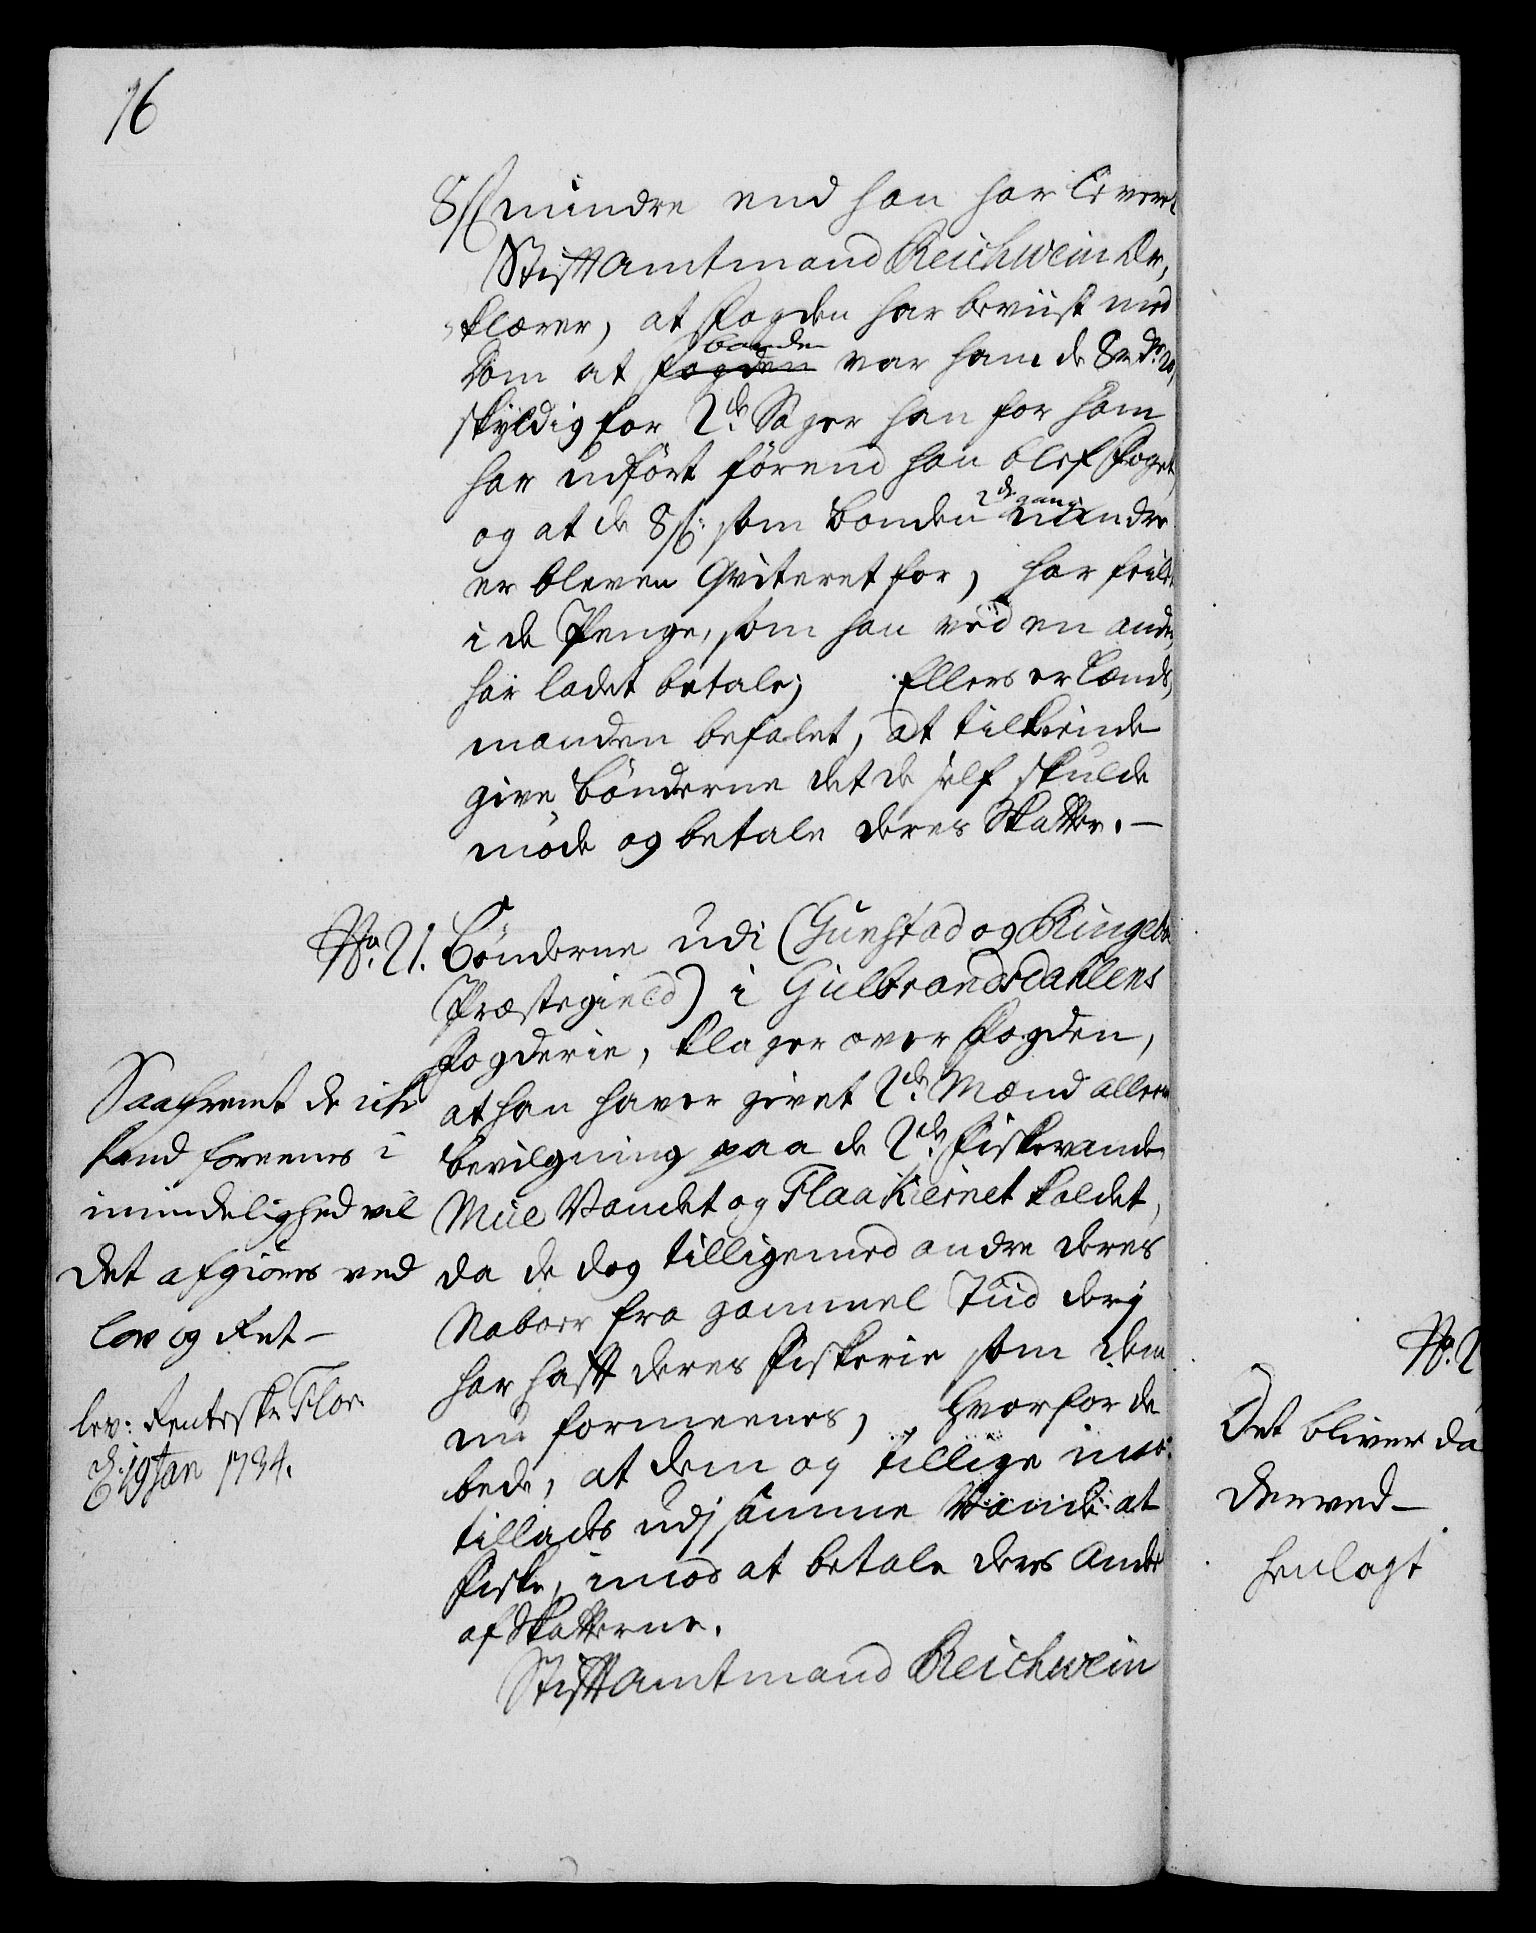 16
8 ß mindre end han har leveret
Stiftamtmand Reichwein Er,
klærer, at Fogden har beviist med
Dom at Fogden bonden var ham de 8
skyldig for 2de Sager han for ham
har udført førend han blef Foget,
og at de 8 ß: som bonden 2de gang mindre
er bleven Qviteret for, har feilet
i de Penge, som han ved en anden
har ladet betale; Ellers er Lænds,
manden befalet, at tilkiende
give bønderne det de self skulde
møde og betale deres Skatter. —
No. 21. Bønderne udi (Gunstad og Ringeboe
Præstegield) i Gulbrandsdahlens
Fogderie, klager over Fogden,
at han haver givet 2de Mænd allene
bevilgning paa de 2de Fiskevande
Müe Vandet og Flaa Kiernet kaldet,
da de dog tilligemed andre deres
Naboer fra gammel Tiid derj
har hafft deres Fiskerie som dem
nu formeenes, hvorfor de
bede, at dem og tillige maa
tillades udj samme Vande at
Fiske, imod at betale deres Andeel
af Skatterne.
Stiftamtmand Reichwein
Saafremt de icke
kand foreenes i
mindelighed vil
det afgiøres ved
lov og Ret —
lev: Renteskr. Flor
d. 19 Jan 1734.
No. 2
Det bliver da
derved —
henlagt